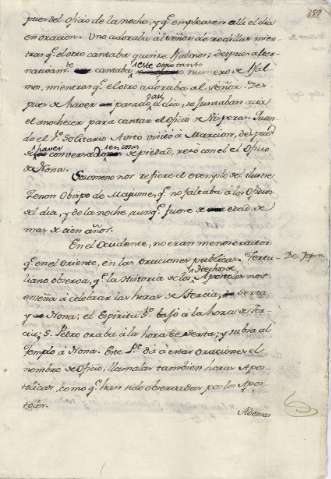 pues del oficio de la noche, y q.e empleasen alli el dia
en oracion. Uno adoraba al señor de rodillas mien-
tras q.e el otro cantaba quinze Psalmos; despues alter-
nativam.te cantaba este otro tanto numero de Psal
mos, mientras q.e el otro adoraba al señor. Des-
pues de haver pasado el dia, se juntaban
al anochecer para cantar el Oficio de Visperas.
do el S.to Solitario visitó a Marcian, despues
de haver conversado de piedad, rezó con el el Oficio
de Nona.
Sozomeno nos refiere el exemplo del ilustre
Zenon Obispo de Majume, q.e no faltaba a los Oficios
del dia, y de la noche aunq.e fuese de edad de
mas de cien años.
En el Occidente, no eran menos exactos
q.e en el Oriente, en las oraciones publicas. Tertu-
liano observa, q.e la Historia de los Hechos de los Apostoles nos
enseña á celebrar las horas de Tercia, Sexta
y Nona: el Espiritu S.to bajó a la hora de Ter-
cia; S. Pedro oraba á la hora de Sexta; y subia al
Templo á Nona. Este P.e dá á estas oraciones el
nombre de Oficio, llamalas tambien horas Apos-
tolicas, como q.e han sido observadas por los Apos-
toles.
Ademas